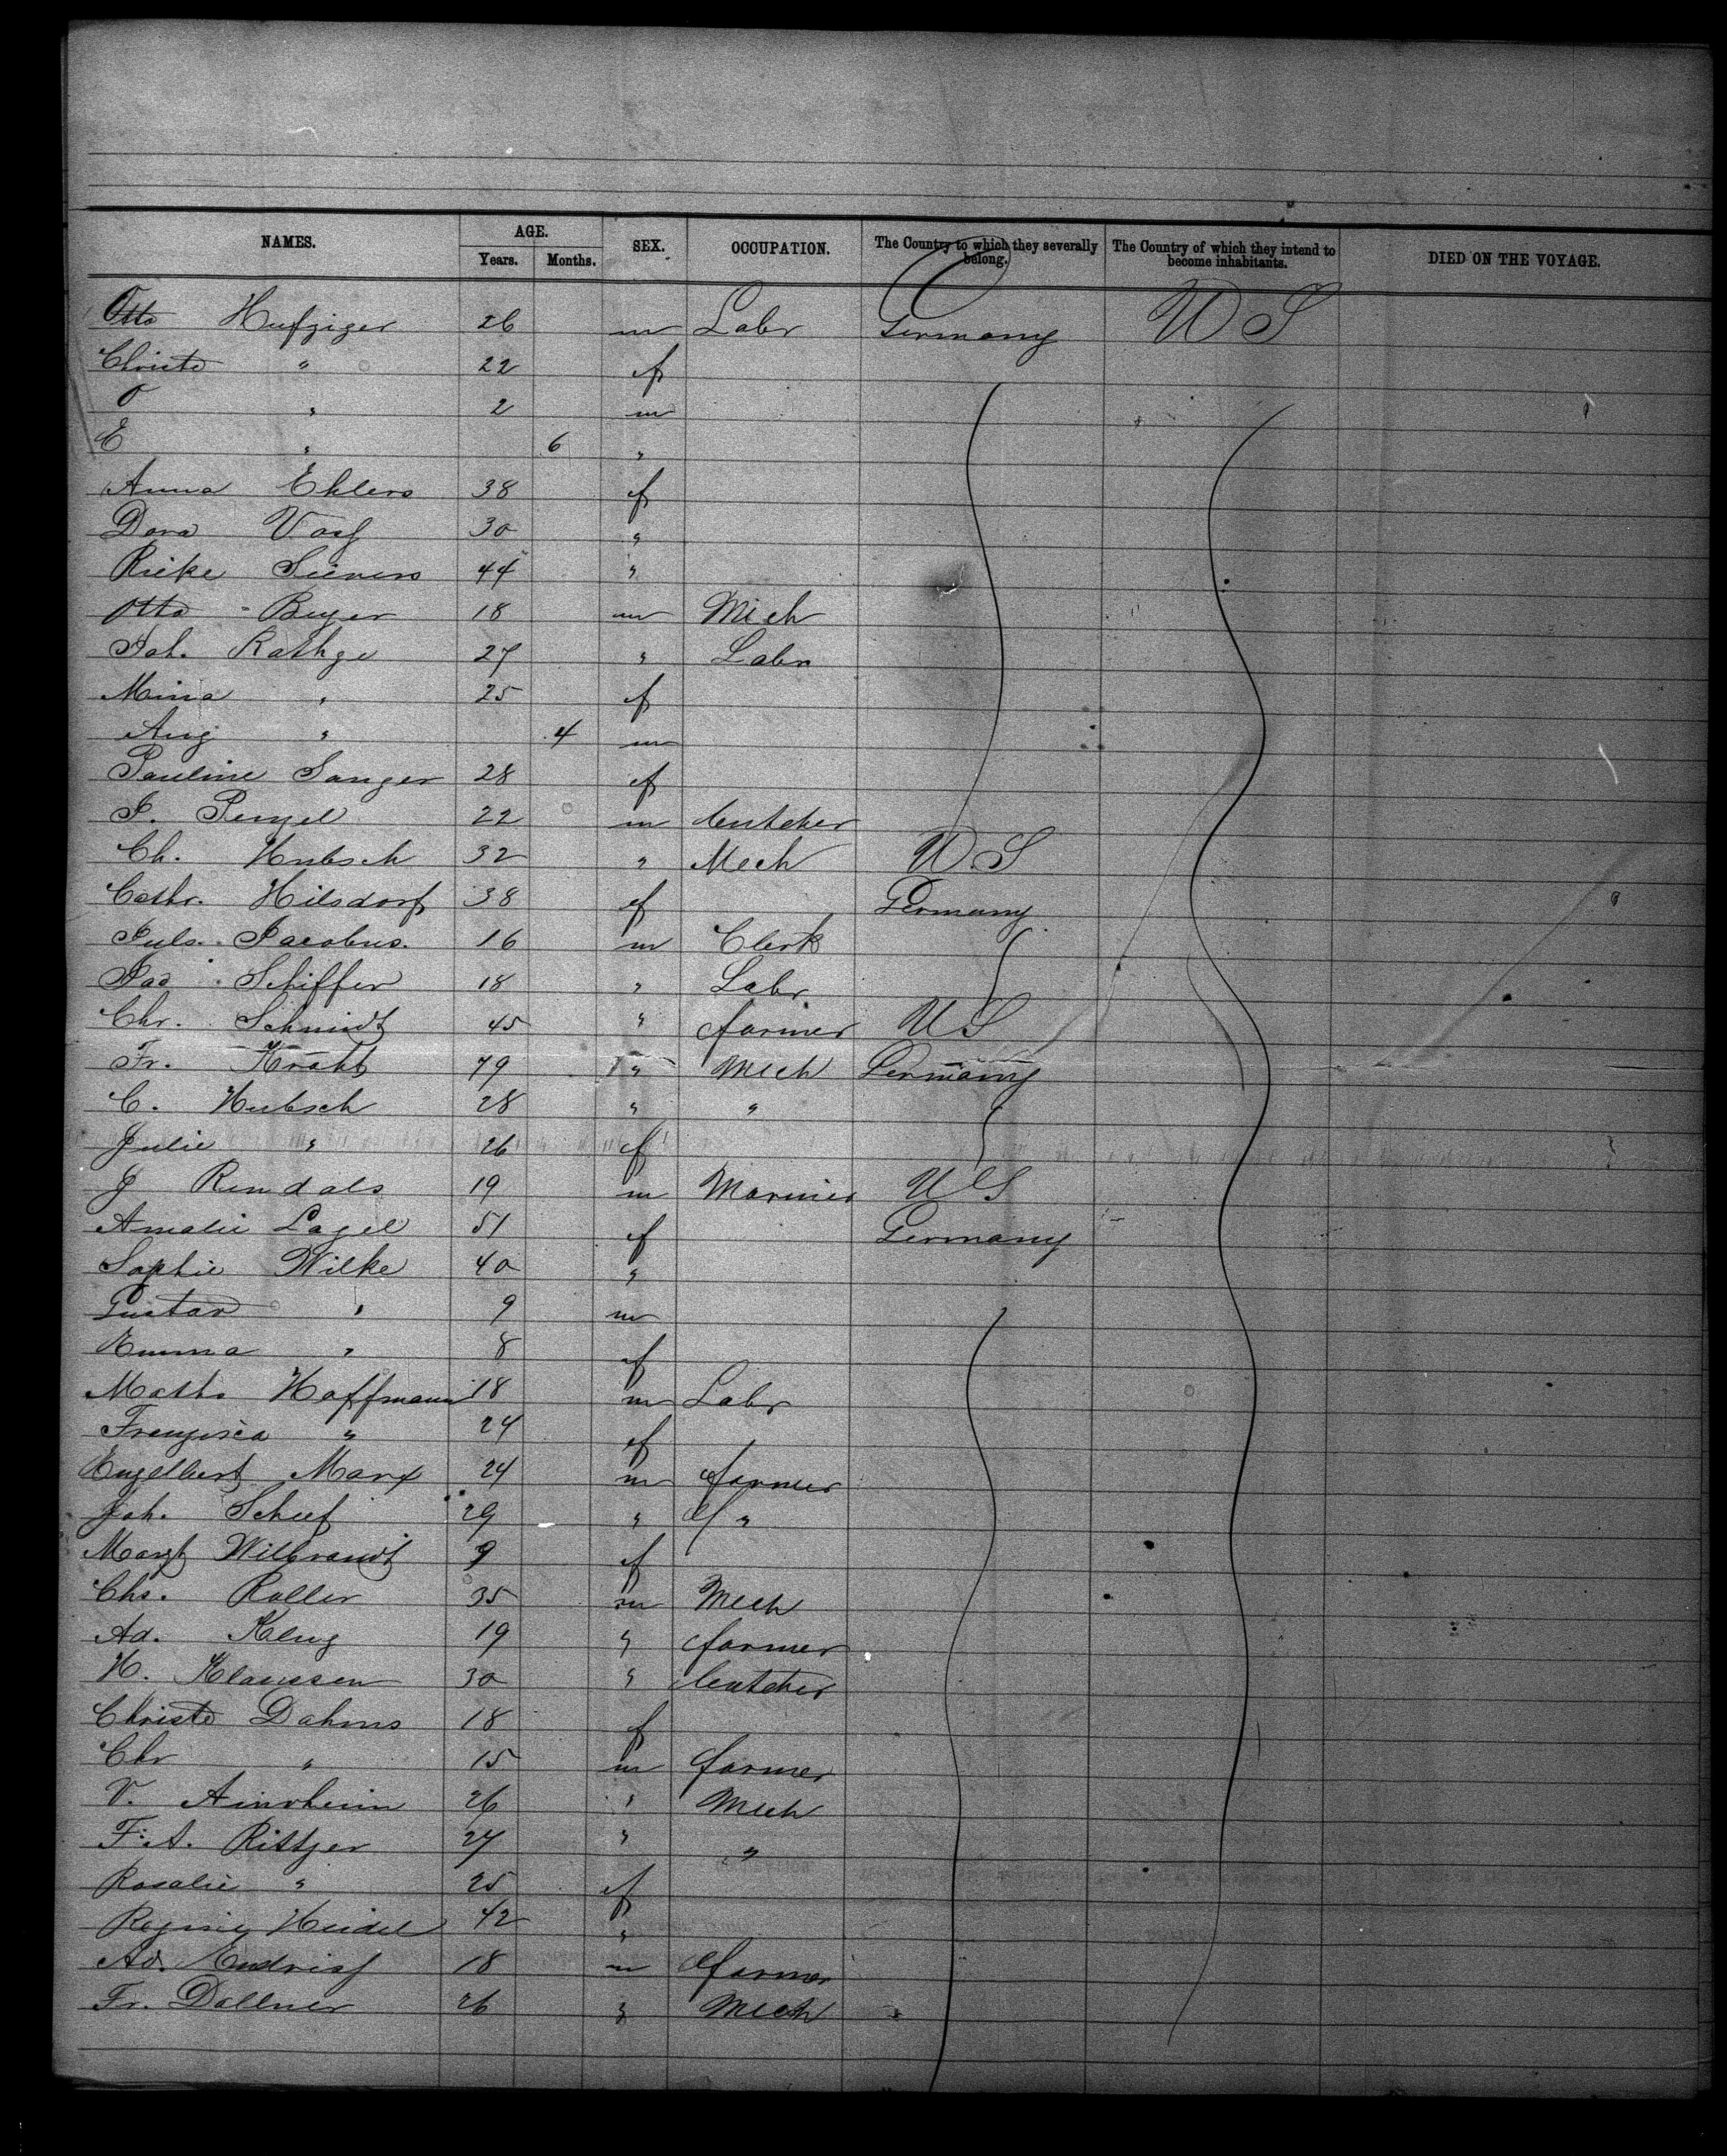 NAMES. AGE. Years. Months. SEX. OCCUPATION. The Country to which they severally belong. The Country of which they intend to become inhabitants. DIED ON THE VOYAGE.
Otto Hufziger 26 m Labr Germany U S
Christe " 22 f
O " 2 m
E " 6 "
Anna Ehlers 38 f
Dora Voss 30 "
Rieke Sievers 44 "
Otto Beyer 18 m Mech
Joh. Rathge 27 " Labr
Mina " 25 f
Aug " 4 m
Pauline Sanger 28 f
P. Penzel 22 m butcher
Ch. Hubsch 32 " Mech U.S
Cathr. Hilsdorf 38 f Germany
Juls. Jacobus. 16 m Clerk
Jac Schiffer 18 " Labr
Chr. Schmidt 45 " farmer U S
Fr. Kraht 79 " Mech Germany
C. Hubsch 28 " "
Julie " 26 f
J Rindals 19 m Mariner U S
Amalie Lagel 51 f Germany
Sophie Wilke 40 "
Gustav " 9 m
Emma " 8 f
Maths Hoffmann 18 m Labr
Franzisca " 24 f
Engelbert Marx 24 m farmer
Joh. Scheef 29 " "
Margt Wilbrandt 9 f
Chs. Roller 35 m Mech
Ad. Klug 19 " farmer
H. Klaussen 30 " butcher
Christe Dahms 18 f
Chr " 15 m farmer
V. 26 " Mech
F. A. Rittger 27 " "
Rosalie " 25 f
Heidel 42 "
Ad. Endriss 18 m farmer
Fr. Dollner 26 " Mech